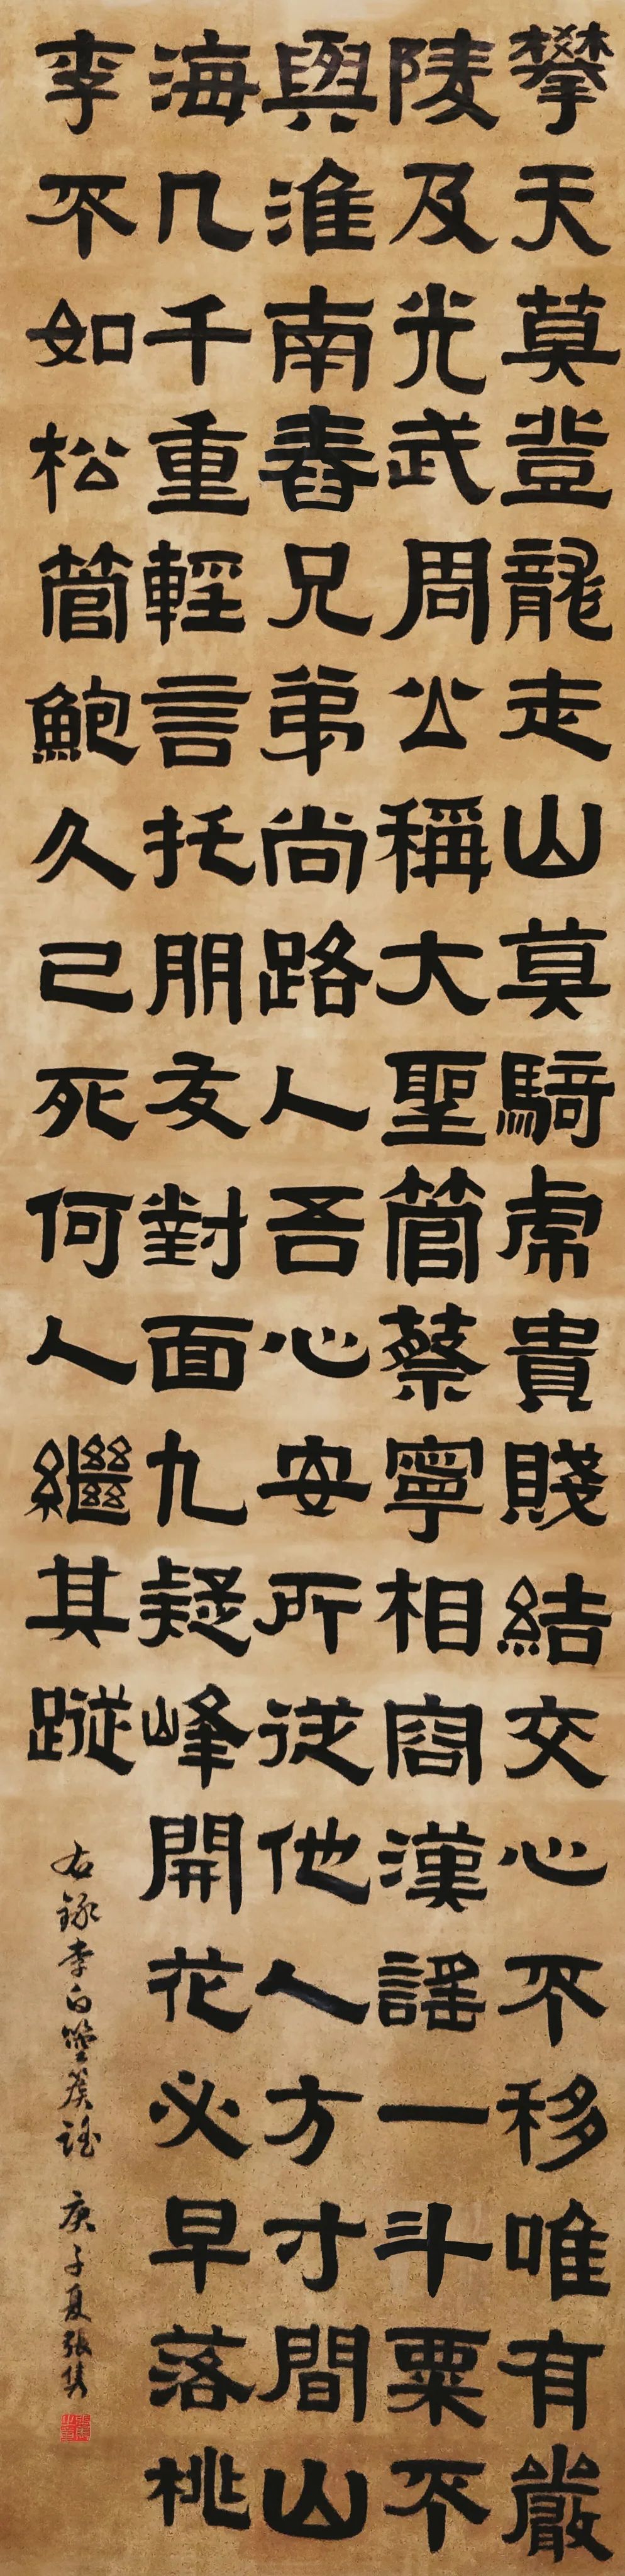 攀天莫登龍走山莫騎虎貴賤結交心不移唯有嚴
陵及光武周公稱大聖管蔡寧相容漢謠一斗粟不
與淮南舂兄弟尚路人吾心安所從他人方寸間山
海几千重輕言托朋友對面九疑峰開花必早落桃
李不如松管鮑久已死何人繼其蹤
右録李白箜篌謠 庚子夏張雋